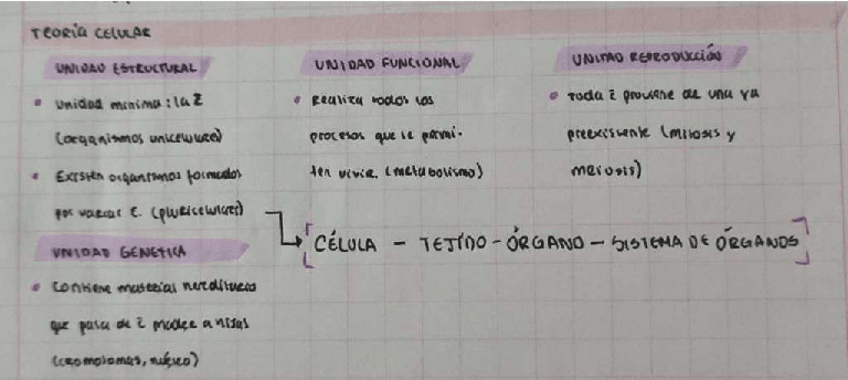 TEORÍA CELULAR
UNIDAD ESTRUCTURAL
• Unidad mínima: la c̄
(organismos unicelulares)
• Existen organismos formados
por varias c. (pluricelulares)
UNIDAD GENETICA
• Contiene material hereditario
que pasa de c̄ madre a hijas
(cromosomas, núcleo)
UNIDAD FUNCIONAL
• Realiza todos los
procesos que le permi-
ten vivir. (metabolismo)
UNIDAD REPRODUCCIÓN
• Toda c̄ proviene de una ya
preexistente (mitosis y
meiosis)
[CÉLULA - TEJIDO - ÓRGANO - SISTEMA DE ÓRGANOS]